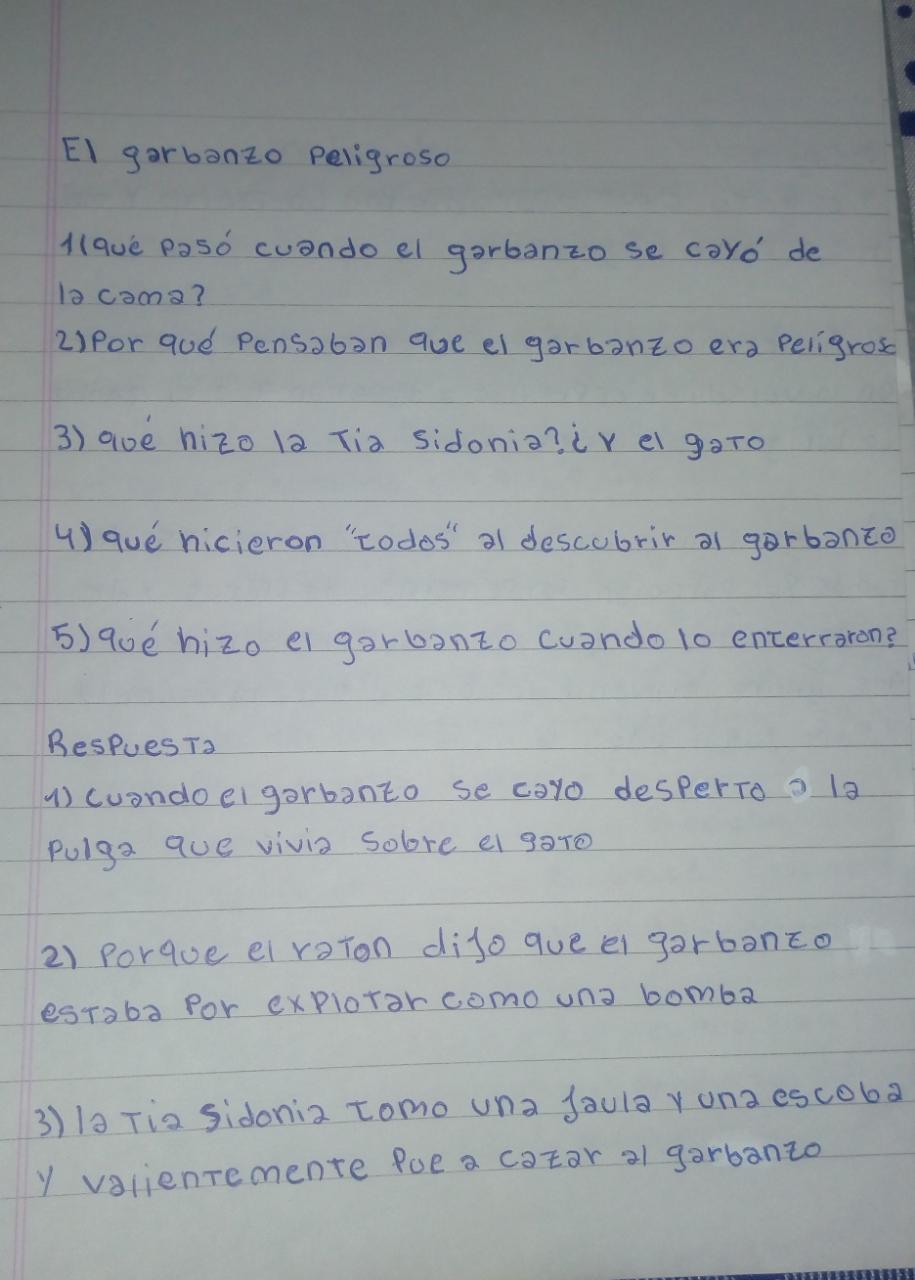 El garbanzo Peligroso
1(qué pasó cuando el garbanzo se cayó de
la cama?
2) Por qué Pensaban que el garbanzo era Peligros
3) qué hizo la Tia Sidonia?¿ Y el gaTo
4) qué hicieron "todos" al descubrir al garbanzo
5) qué hizo el garbanzo cuando lo enterraron?
ResPuesTa
1) cuando el garbanzo se cayo desPerTo a la
Pulga que vivia Sobre el gaTo
2) Porque el raTon dijo que el garbanzo
esTaba Por exPloTar como una bomba
3) la Tia Sidonia tomo una jaula y una escoba
Y valienTemente fue a cazar al garbanzo